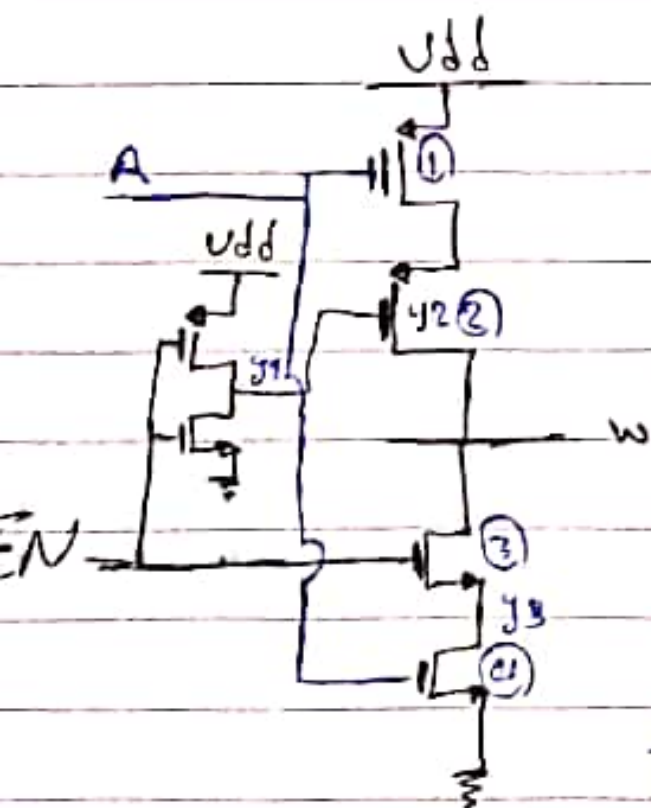 Vdd
A
①
Vdd
y2 ②
y1
w
EN
③
y3